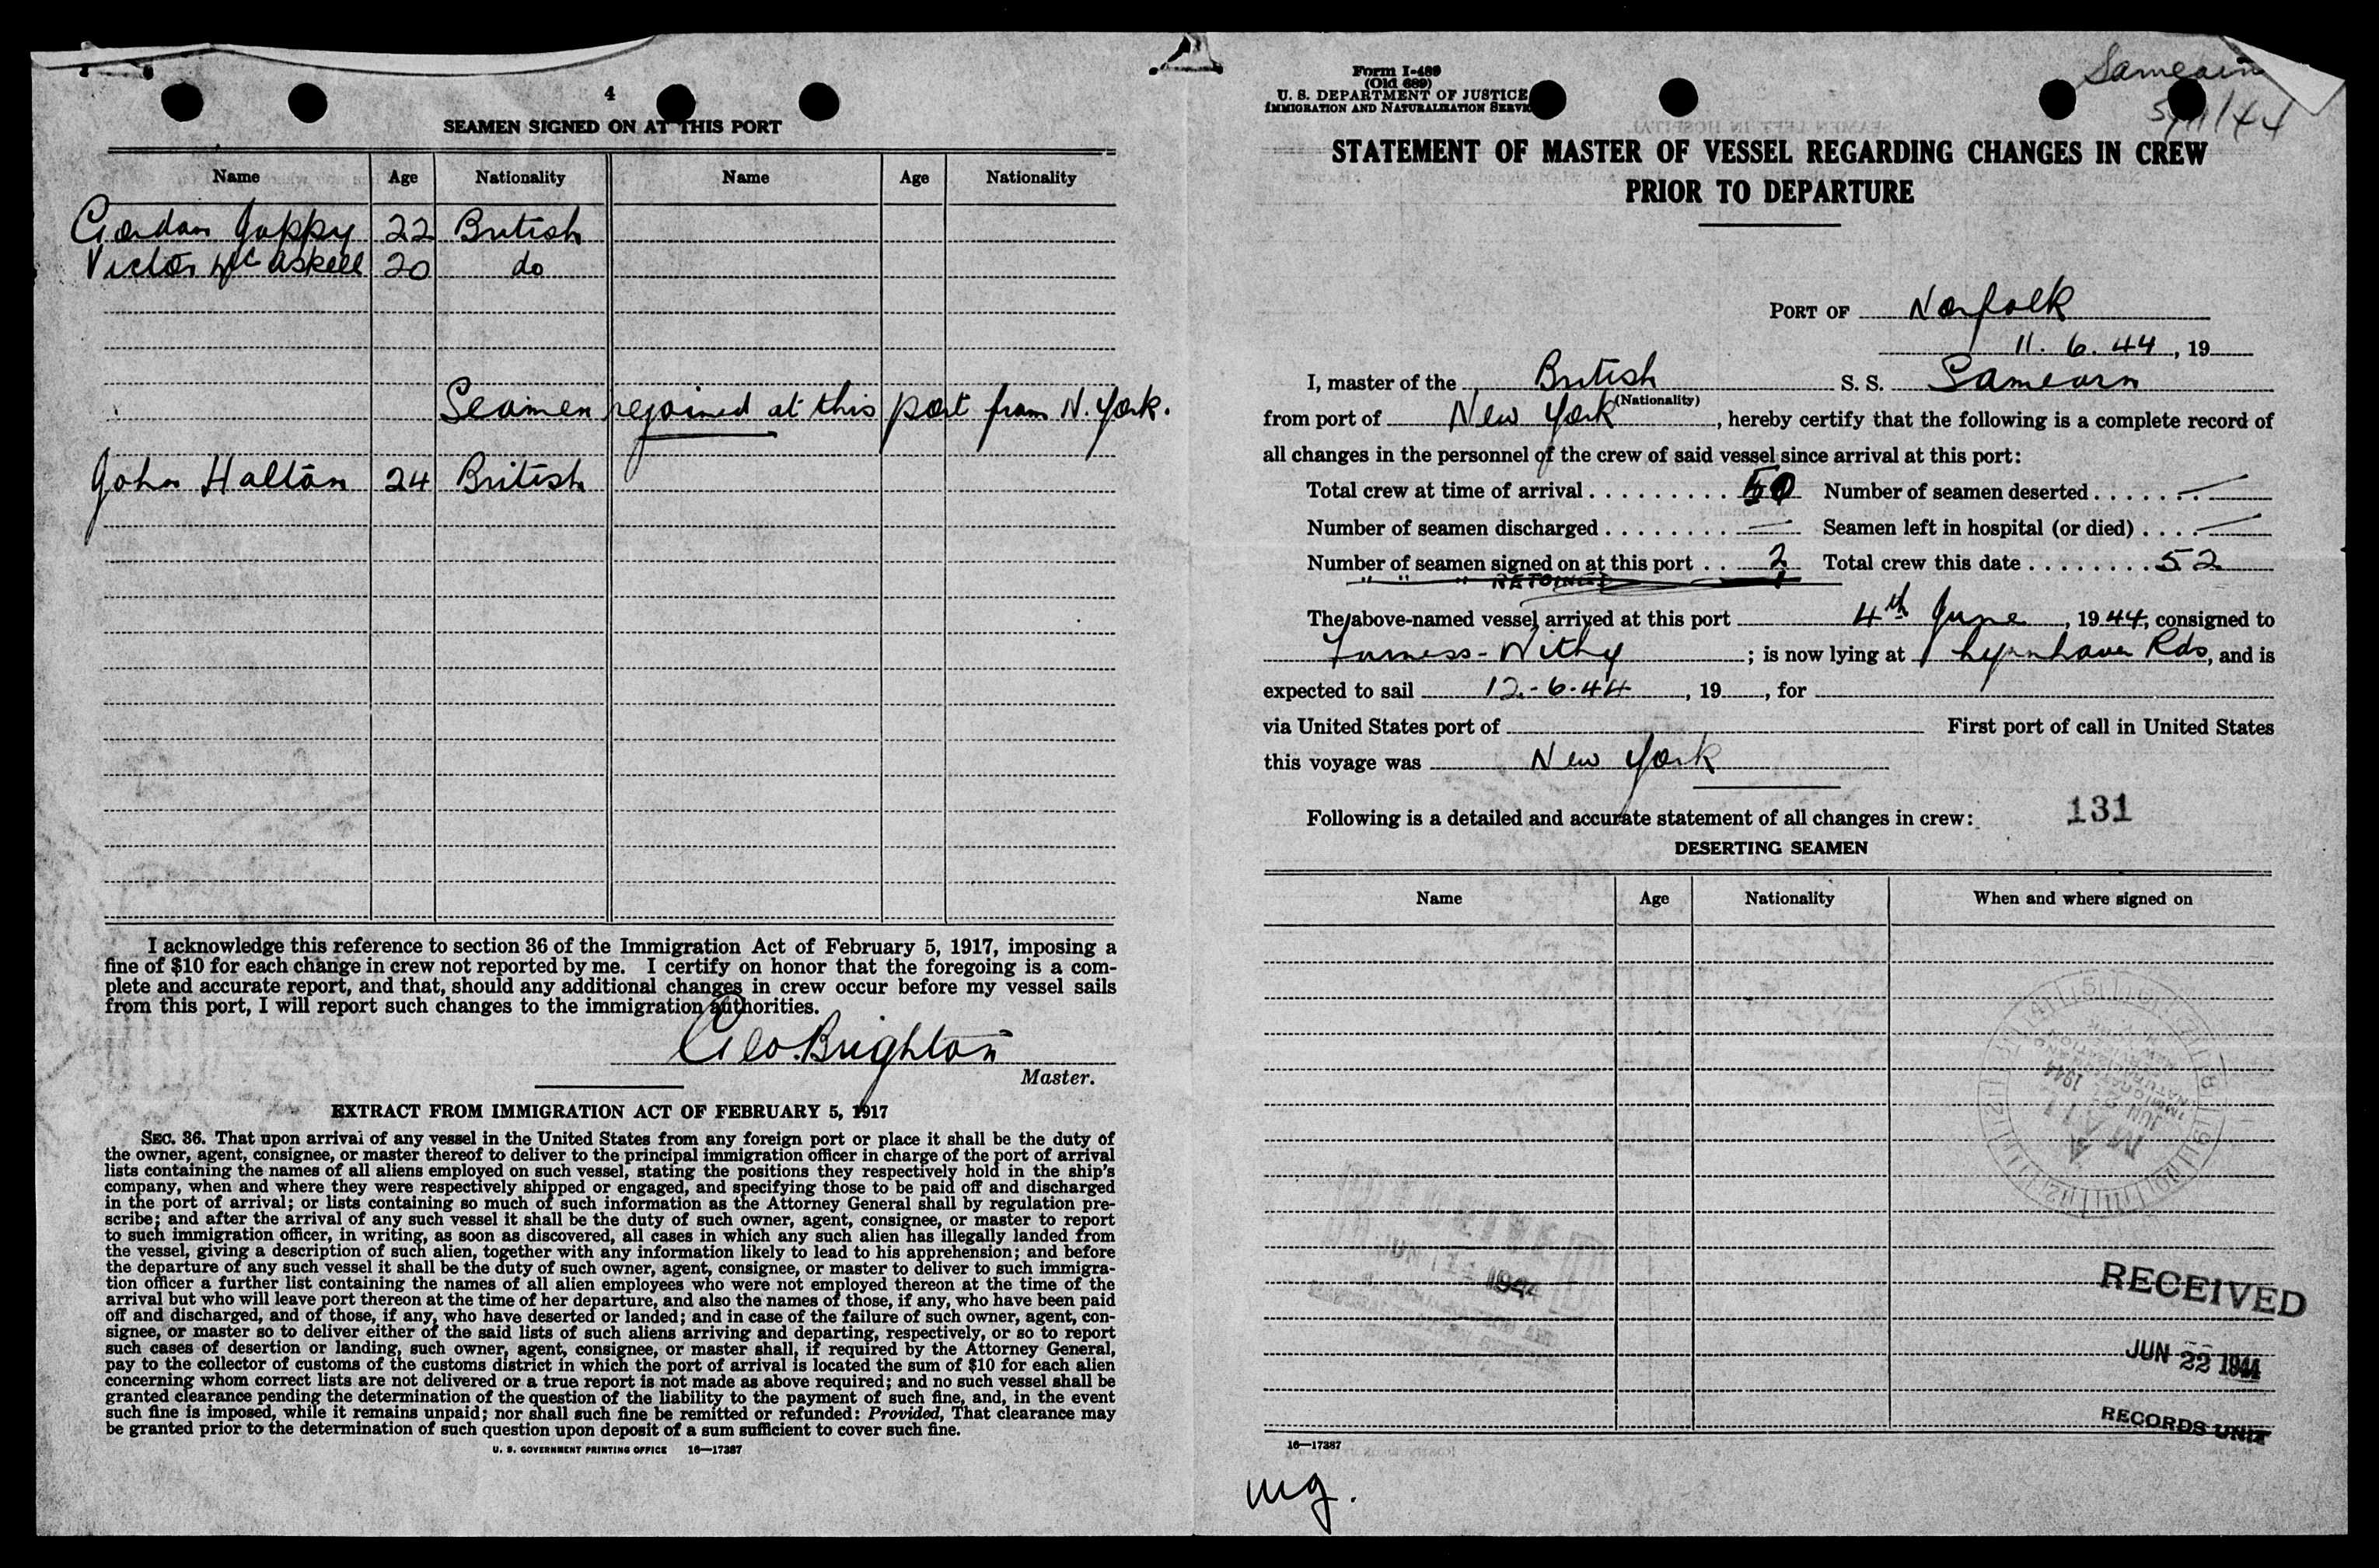 4
SEAMEN SIGNED ON AT THIS PORT
Name Age Nationality Name Age Nationality
Gordon Jappy 22 British
Victor McAskell 20 do
Seamen rejoined at this port from N. York.
John Halton 24 British
I acknowledge this reference to section 36 of the Immigration Act of February 5, 1917, imposing a
fine of $10 for each change in crew not reported by me. I certify on honor that the foregoing is a com-
plete and accurate report, and that, should any additional changes in crew occur before my vessel sails
from this port, I will report such changes to the immigration authorities.
Geo. Brighton
Master.
EXTRACT FROM IMMIGRATION ACT OF FEBRUARY 5, 1917
SEC. 36. That upon arrival of any vessel in the United States from any foreign port or place it shall be the duty of
the owner, agent, consignee, or master thereof to deliver to the principal immigration officer in charge of the port of arrival
lists containing the names of all aliens employed on such vessel, stating the positions they respectively hold in the ship's
company, when and where they were respectively shipped or engaged, and specifying those to be paid off and discharged
in the port of arrival; or lists containing so much of such information as the Attorney General shall by regulation pre-
scribe; and after the arrival of any such vessel it shall be the duty of such owner, agent, consignee, or master to report
to such immigration officer, in writing, as soon as discovered, all cases in which any such alien has illegally landed from
the vessel, giving a description of such alien, together with any information likely to lead to his apprehension; and before
the departure of any such vessel it shall be the duty of such owner, agent, consignee, or master to deliver to such immigra-
tion officer a further list containing the names of all alien employees who were not employed thereon at the time of the
arrival but who will leave port thereon at the time of her departure, and also the names of those, if any, who have been paid
off and discharged, and of those, if any, who have deserted or landed; and in case of the failure of such owner, agent, con-
signee, or master so to deliver either of the said lists of such aliens arriving and departing, respectively, or so to report
such cases of desertion or landing, such owner, agent, consignee, or master shall, if required by the Attorney General,
pay to the collector of customs of the customs district in which the port of arrival is located the sum of $10 for each alien
concerning whom correct lists are not delivered or a true report is not made as above required; and no such vessel shall be
granted clearance pending the determination of the question of the liability to the payment of such fine, and, in the event
such fine is imposed, while it remains unpaid; nor shall such fine be remitted or refunded: Provided, That clearance may
be granted prior to the determination of such question upon deposit of a sum sufficient to cover such fine.
U. S. GOVERNMENT PRINTING OFFICE 16—17387
Form I-489
(Old 689)
U. S. DEPARTMENT OF JUSTICE
IMMIGRATION AND NATURALIZATION SERVICE
Samearn
STATEMENT OF MASTER OF VESSEL REGARDING CHANGES IN CREW
PRIOR TO DEPARTURE
PORT OF Norfolk
11. 6. 44, 19
I, master of the British S. S. Samearn
(Nationality)
from port of New York, hereby certify that the following is a complete record of
all changes in the personnel of the crew of said vessel since arrival at this port:
Total crew at time of arrival 50 Number of seamen deserted —
Number of seamen discharged — Seamen left in hospital (or died) —
Number of seamen signed on at this port 2 Total crew this date 52
" " " REJOINED 1
The above-named vessel arrived at this port 4th June, 1944, consigned to
Furness-Withy; is now lying at Lynnhaven Rds, and is
expected to sail 12-6-44, 19, for
via United States port of First port of call in United States
this voyage was New York
Following is a detailed and accurate statement of all changes in crew: 131
DESERTING SEAMEN
Name Age Nationality When and where signed on
RECEIVED
JUN 22 1944
RECORDS UNIT
16—17387
mg.